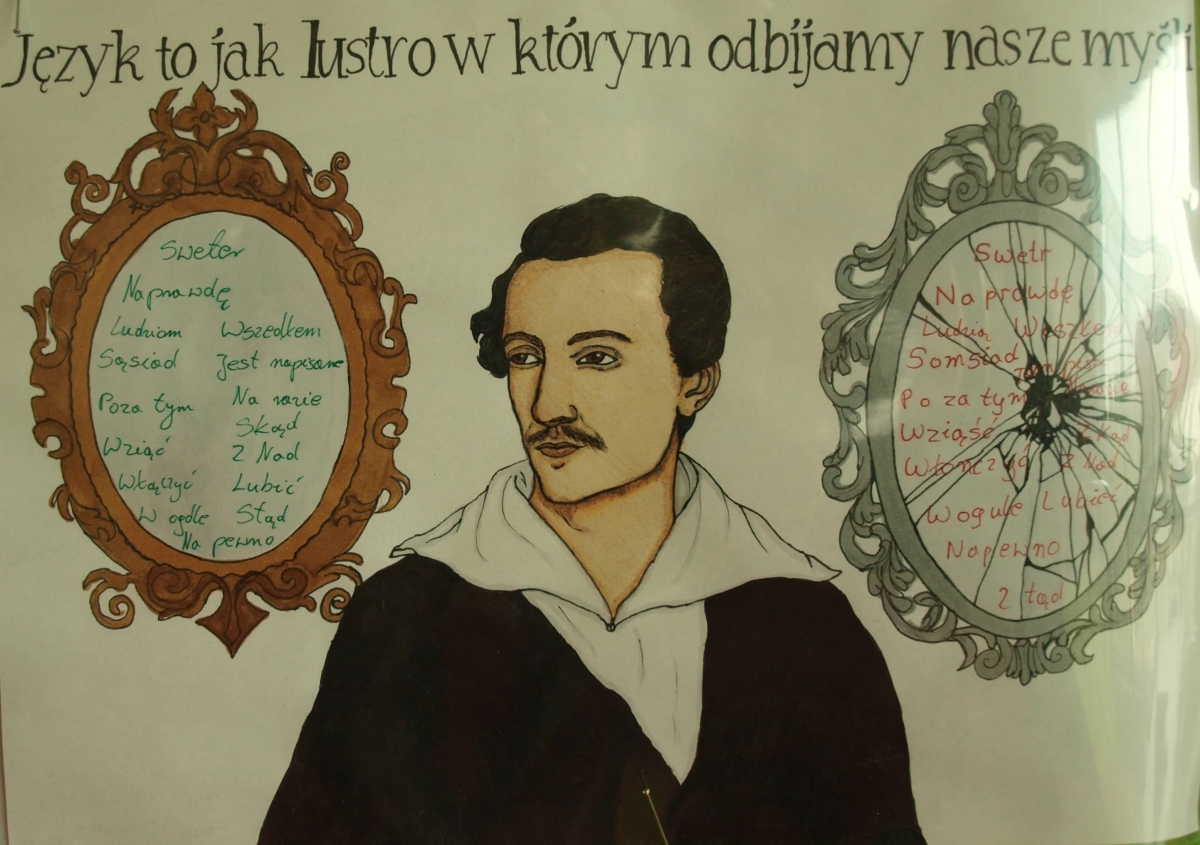 Język to jak lustro w którym odbijamy nasze myśli
Sweter
Naprawdę
Ludziom Wszedłem
Sąsiad Jest napisane
Poza tym Na razie
Skąd
Wziąć Z Nad
Włączyć Lubić
W ogóle Stąd
Na pewno
Swetr
Na prawdę
Ludzią Weszłem
Somsiad
Po za tym
Wziąść Z Kąd
Włonczyć Z Nad
Wogule Lubieć
Napewno
Z tąd